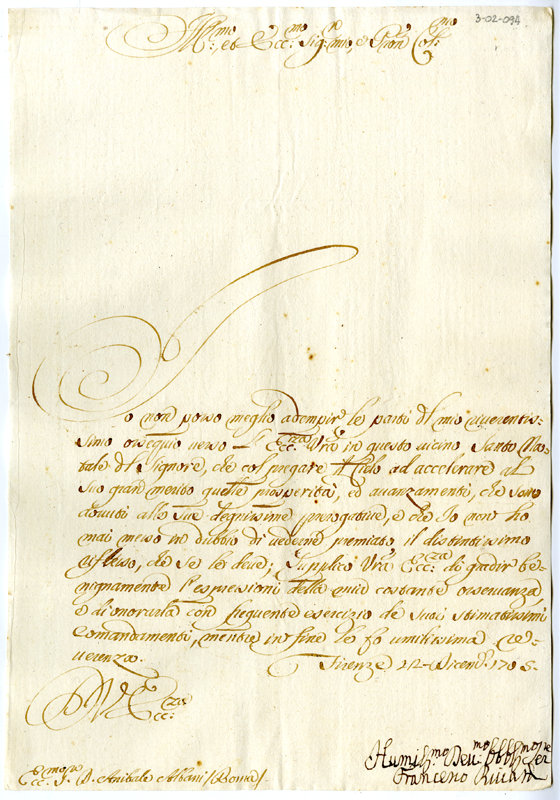 3-02-094
Ill:mo et Ecc:mo Sig:re mio, e Pron Col:mo
Io non posso meglio adempir le parti del mio riverentis-
simo ossequio verso l' Ecc:za Vra in questo vicino Santo Na-
tale del Signore, che col pregare il Cielo ad accelerare al
suo gran merito quelle prosperità, ed avanzamenti, che sono
dovuti alle sue degnissime prerogative, e che Io non ho
mai messo in dubio di vederne premiato il distintissimo
riflesso, che se le deve; Supplico Vra Ecc:za di gradir be-
nignamente l'espressioni della mia costante osservanza
e di onorarla con frequente esercizio de suoi stimatissimi
comandamenti, mentre in fine le fò umilissima re-
uerenza. Firenze 22 Dicemb.e 1705.
D V Ecc:za
Humil:mo Deu:mo Obbl:mo Ser:re
Francesco
Ecc:mo S.r D. Anibale Albani /Roma/.